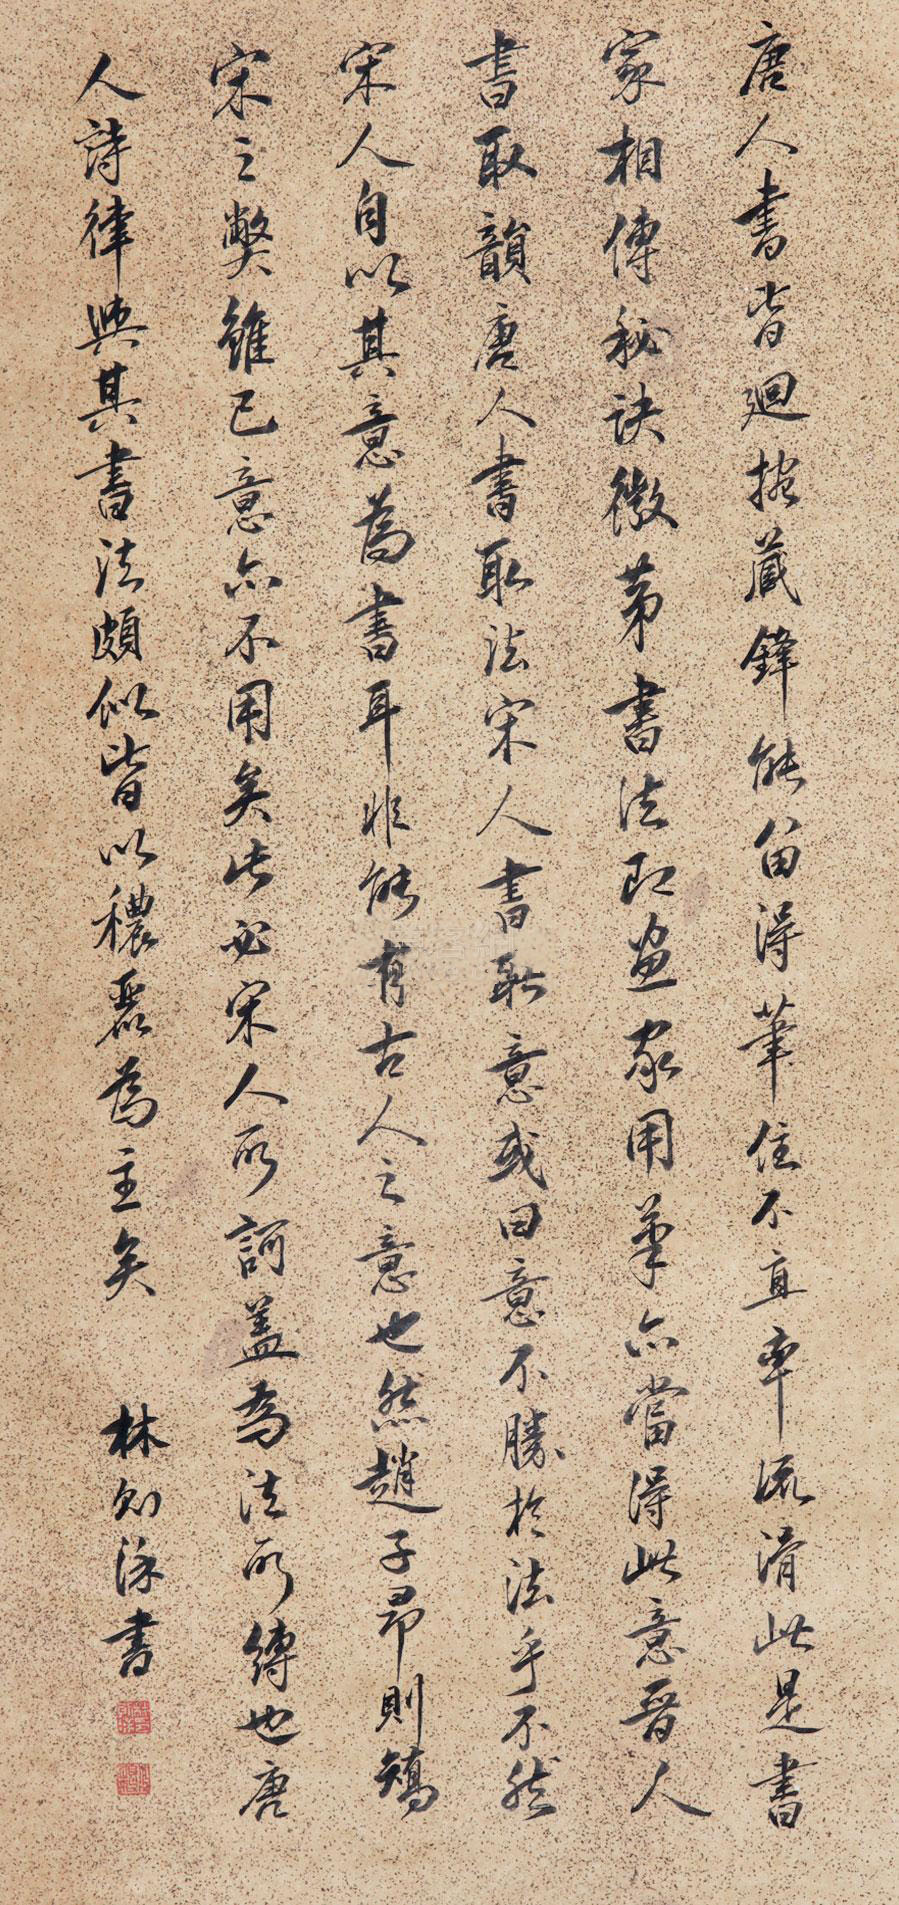 唐人書皆廻挖藏鋒能留得筆住不直率流滑此是書
家相傳秘訣微第書法即畫家用筆亦當得此意晉人
書取韻唐人書取法宋人書取意或曰意不勝於法乎不然
宋人自以其意為書耳非能有古人之意也然趙子昂則矯
宋之弊雖己意亦不用矣此必宋人所訶蓋為法所縛也唐
人詩律與其書法頗似皆以穠麗為主矣
林則徐書